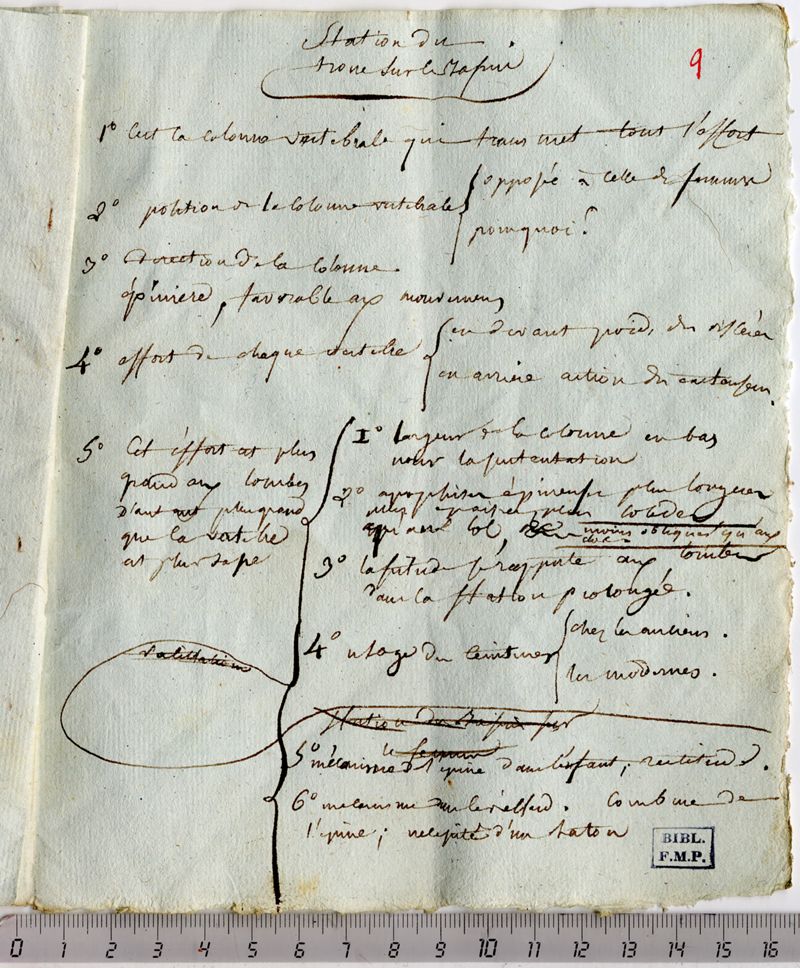 Station du
tronc sur le Bassin
9
1° C'est la colonne vertebrale qui transmet tout l'effort
2° position de la colonne vertebrale
opposée à celle du femur
pourquoi?
3° direction de la colonne
épiniere, favorable aux mouvemens
4° effort de chaque vertebre
en devant poids des visceres
en arriere action des extenseurs.
5° Cet effort est plus
grand aux lombes
d'autant plus grand
que la vertebre
est plus
1° largeur de la colonne en bas
pour la sustentation
2° apophises épineuses plus longues
plus solides
qu'au col, moins obliques qu'au
dos
3° lassitude se rapporte aux lombes
dans la station prolongée.
4° usage des ceintures
chez les anciens.
les modernes.
station du Bassin sur
le femur
5° mécanisme de l'épine dans l'enfant; rectitude.
6° mecanisme dans le vieillard. Courbure de
l'épine; necessité d'un baton
BIBL.
F.M.P.
0 1 2 3 4 5 6 7 8 9 10 11 12 13 14 15 16